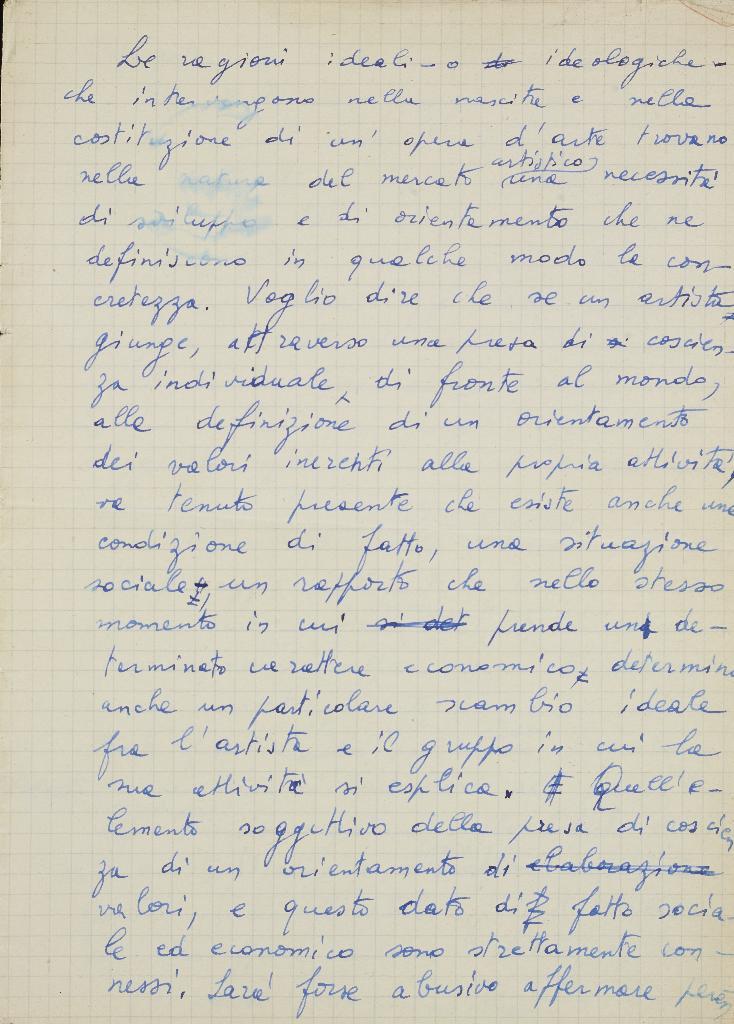 Le ragioni ideali - o ideologiche -
che intervengono nella nascita e nella
costituzione di un' opera d'arte trovano
nella natura del mercato artistico una necessità
di sviluppo e di orientamento che ne
definiscono in qualche modo la con-
cretezza. Voglio dire che se un artista
giunge, attraverso una presa di coscien-
za individuale, di fronte al mondo,
alla definizione di un orientamento
dei valori inerenti alla propria attività,
va tenuto presente che esiste anche una
condizione di fatto, una situazione
sociale, un rapporto che nello stesso
momento in cui si det prende un de-
terminato carattere economico, determina
anche un particolare scambio ideale
fra l'artista e il gruppo in cui la
sua attività si esplica. Quell'e-
lemento soggettivo della presa di coscien
za di un orientamento di elaborazione
valori, e questo dato di fatto socia-
le ed economico sono strettamente con-
nessi. Sarà forse abusivo affermare